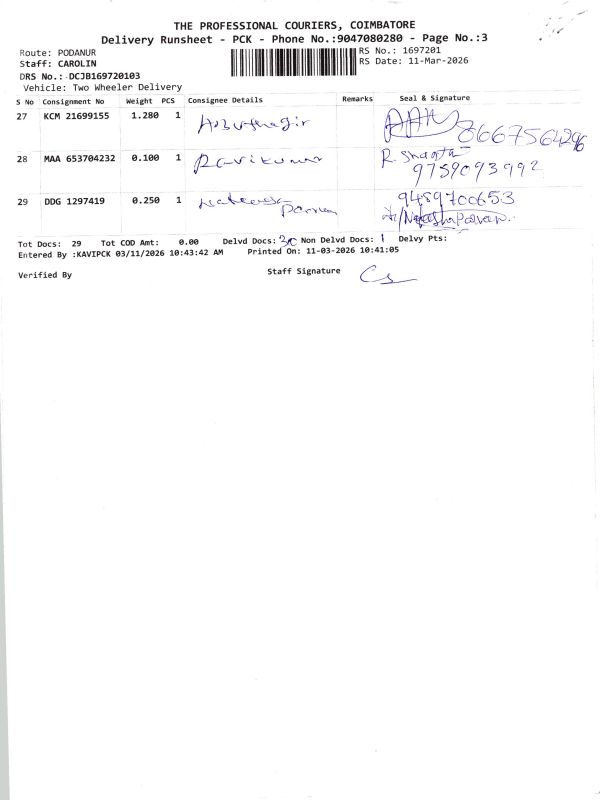 THE PROFESSIONAL COURIERS, COIMBATORE
Delivery Runsheet - PCK - Phone No.:9047080280 - Page No.:3
Route: PODANUR
RS No.: 1697201
Staff: CAROLIN
RS Date: 11-Mar-2026
DRS No.: DCJB169720103
Vehicle: Two Wheeler Delivery
S No Consignment No Weight PCS Consignee Details Remarks Seal & Signature
27 KCM 21699155 1.280 1 8667564296
28 MAA 653704232 0.100 1 Ravikumar R. Shanthi
9759093992
29 DDG 1297419 0.250 1 9489700653
Tot Docs: 29 Tot COD Amt: 0.00 Delvd Docs: 30 Non Delvd Docs: 1 Delvy Pts:
Entered By :KAVIPCK 03/11/2026 10:43:42 AM Printed On: 11-03-2026 10:41:05
Verified By Staff Signature